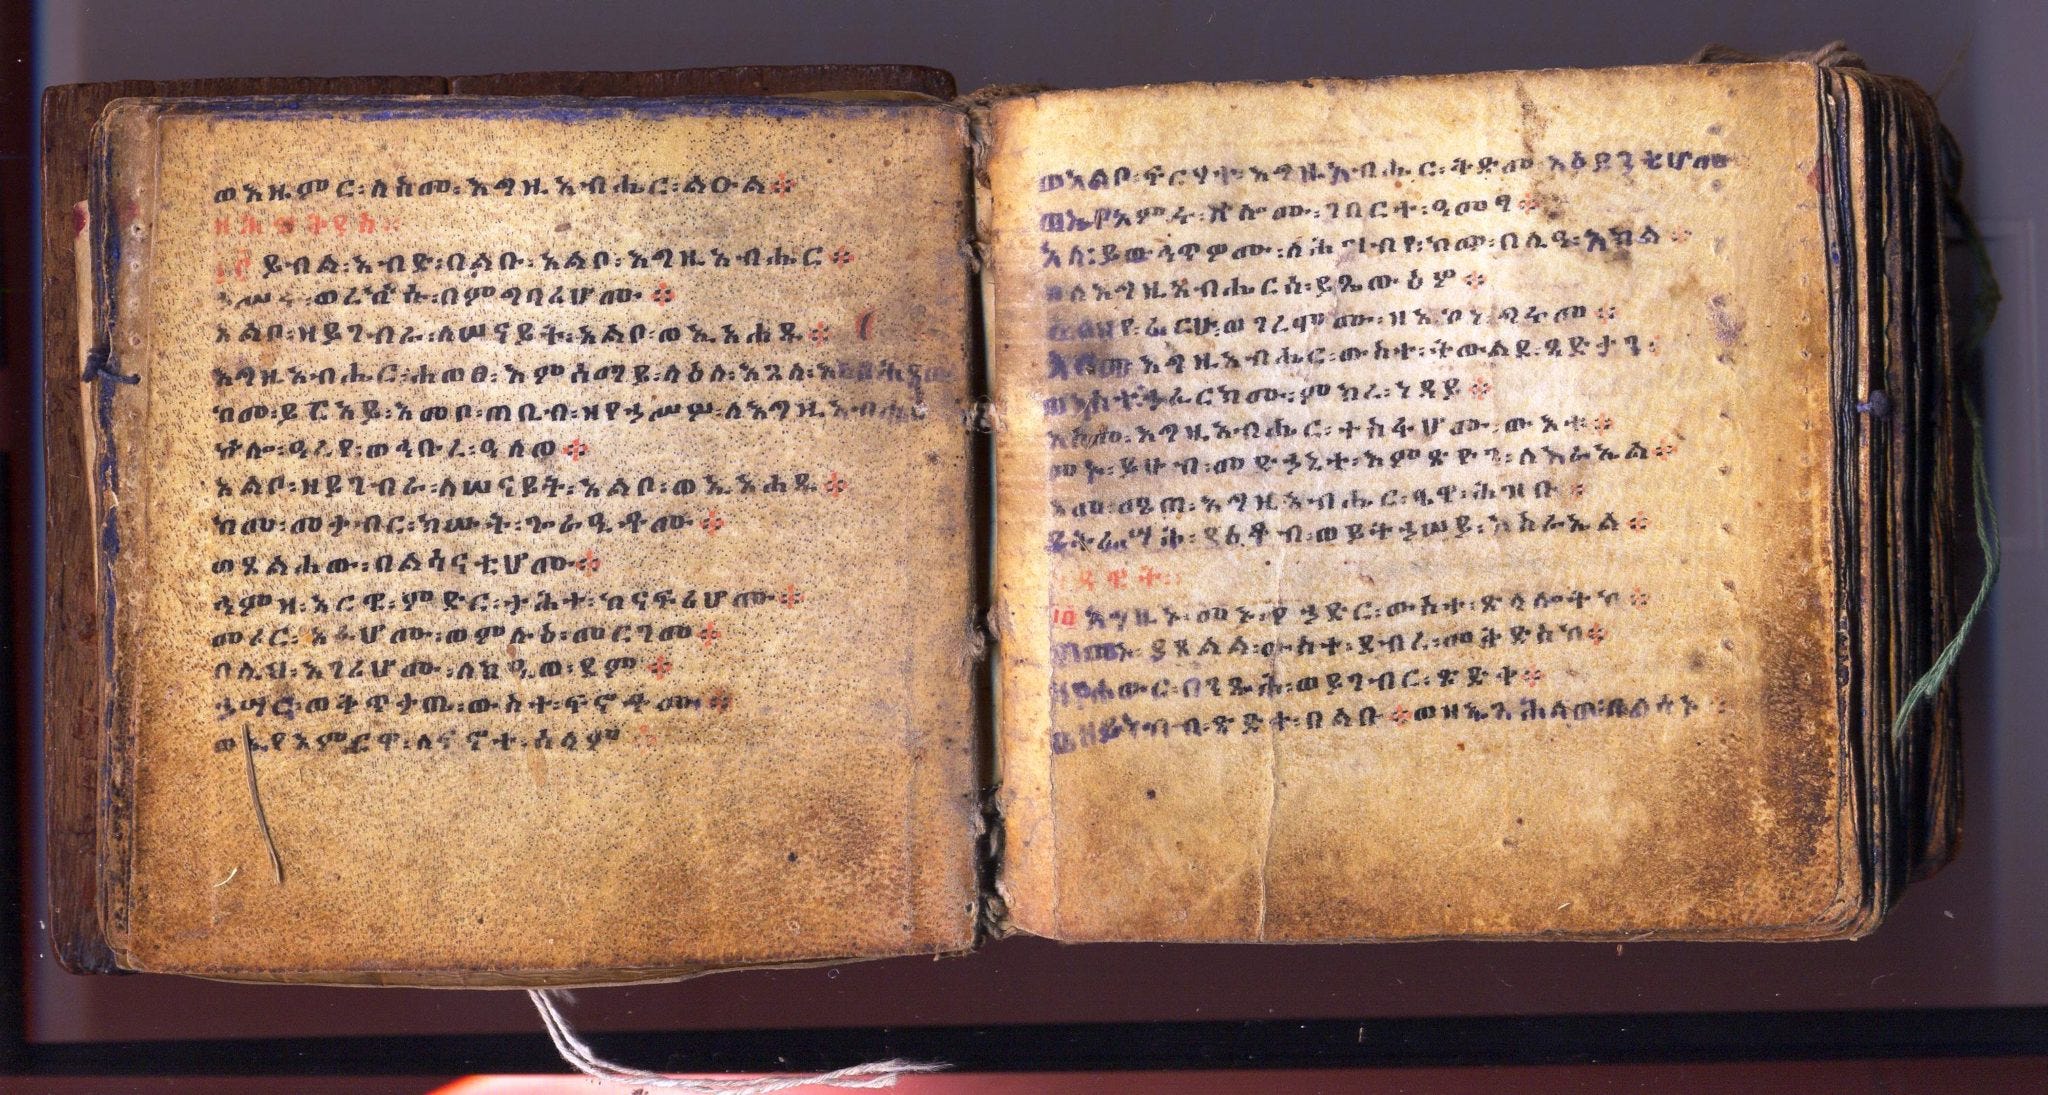 ወእዜምር፡ለስመ፡እግዚአብሔር፡ልዑል።
፲፫ ይብል፡አብድ፡በልቡ፡አልቦ፡እግዚአብሔር።
ኀሠሩ፡ወረኵሱ፡በምግባሪሆሙ።
አልቦ፡ዘይገብራ፡ለሠናይት፡አልቦ፡ወኢአሐዱ።
እግዚአብሔር፡ሐወፀ፡እምሰማይ፡ላዕለ፡እጓለ፡እመሕያው
ከመ፡ይርአይ፡እመቦ፡ጠቢብ፡ዘየኀሥሦ፡ለእግዚአብሔር
ኵሎ፡ዓረየ፡ወኃቡረ፡ዓለወ።
አልቦ፡ዘይገብራ፡ለሠናይት፡አልቦ፡ወኢአሐዱ።
ከመ፡መቃብር፡ክሡት፡ጐራዒቶሙ።
ወጸልሐው፡በልሳናቲሆሙ።
ሕምዘ፡አርዌ፡ምድር፡ታሕተ፡ከናፍሪሆሙ።
መሪር፡አፉሆሙ፡ወምሉዕ፡መርገመ።
በሊህ፡እገሪሆሙ፡ለክዒወ፡ደም።
ኃሣር፡ወቅጥቃጤ፡ውስተ፡ፍኖቶሙ።
ወኢየአምርዋ፡ለፍኖተ፡ሰላም።
ወአልቦ፡ፍርሃተ፡እግዚአብሔር፡ቅድመ፡አዕይንቲሆሙ
ወኢየአምሩ፡ኵሎሙ፡ገበርተ፡ዓመፃ።
እለ፡ይውኅጥዎሙ፡ለሕዝብየ፡ከመ፡በሊዓ፡እክል።
ወለእግዚአብሔርሰ፡ኢጼውዕዎ።
ፈርሁ፡ወገረሞሙ፡ዘኢኮነ፡ግሩመ።
እስመ፡እግዚአብሔር፡ውስተ፡ትውልደ፡ጻድቃን፡
ወአስተኃፈርክሙ፡ምክረ፡ነዳይ።
እስመ፡እግዚአብሔር፡ተስፋሆሙ፡ውእቱ።
መኑ፡ይሁብ፡መድኃኒተ፡እምጽዮን፡ለእስራኤል።
አመ፡ሜጠ፡እግዚአብሔር፡ፄዋ፡ሕዝቡ።
ይትፌሣሕ፡ያዕቆብ፡ወይትኃሠይ፡እስራኤል።
ዘዳዊት፡፡
፲፬ እግዚኦ፡መኑ፡የኃድር፡ውስተ፡ጽላሎትከ።
ወመኑ፡ያጸልል፡ውስተ፡ደብረ፡መቅደስከ።
ዘየሐውር፡በንጹሕ፡ወይገብር፡ጽድቀ።
ወዘይነብብ፡ጽድቀ፡በልቡ።ወዘኢጓሕለወ፡በልሳኑ፡